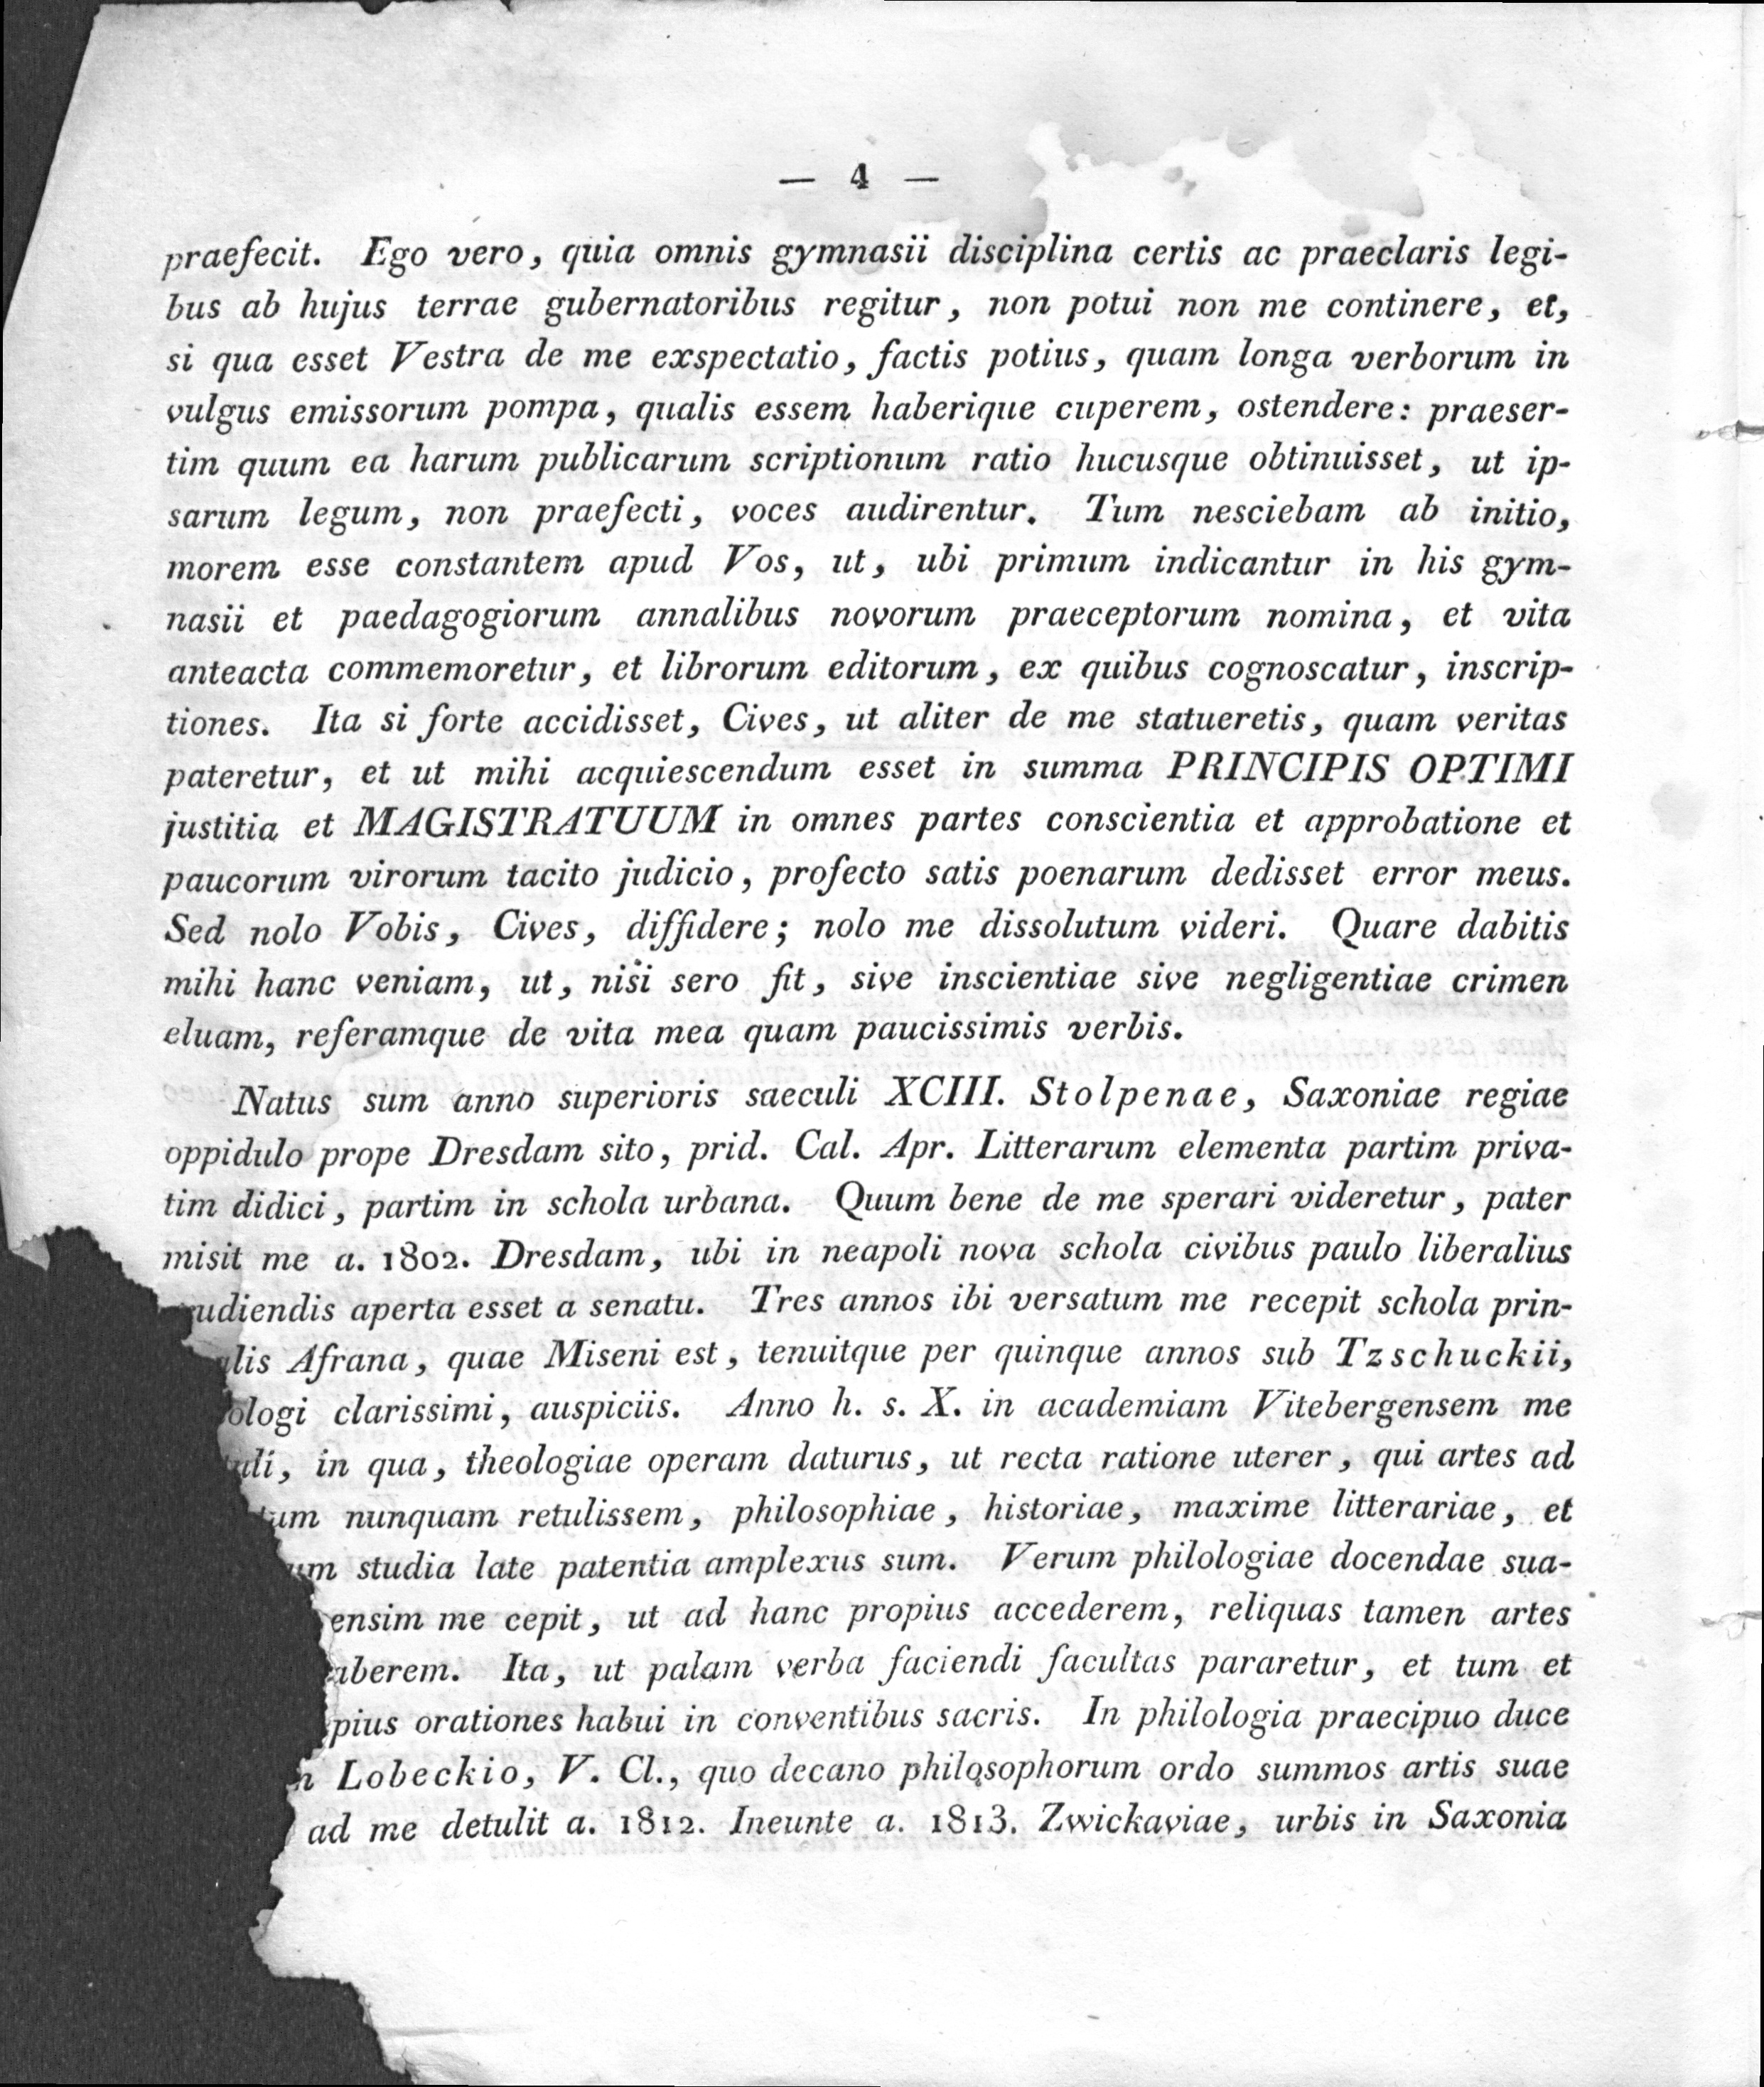 — 4 —
praefecit. Ego vero, quia omnis gymnasii disciplina certis ac praeclaris legi-
bus ab hujus terrae gubernatoribus regitur, non potui non me continere, et,
si qua esset Vestra de me exspectatio, factis potius, quam longa verborum in
vulgus emissorum pompa, qualis essem haberique cuperem, ostendere: praeser-
tim quum ea harum publicarum scriptionum ratio hucusque obtinuisset, ut ip-
sarum legum, non praefecti, voces audirentur. Tum nesciebam ab initio,
morem esse constantem apud Vos, ut, ubi primum indicantur in his gym-
nasii et paedagogiorum annalibus novorum praeceptorum nomina, et vita
anteacta commemoretur, et librorum editorum, ex quibus cognoscatur, inscrip-
tiones. Ita si forte accidisset, Cives, ut aliter de me statueretis, quam veritas
pateretur, et ut mihi acquiescendum esset in summa PRINCIPIS OPTIMI
justitia et MAGISTRATUUM in omnes partes conscientia et approbatione et
paucorum virorum tacito judicio, profecto satis poenarum dedisset error meus.
Sed nolo Vobis, Cives, diffidere; nolo me dissolutum videri. Quare dabitis
mihi hanc veniam, ut, nisi sero fit, sive inscientiae sive negligentiae crimen
eluam, referamque de vita mea quam paucissimis verbis.
Natus sum anno superioris saeculi XCIII. Stolpenae, Saxoniae regiae
oppidulo prope Dresdam sito, prid. Cal. Apr. Litterarum elementa partim priva-
tim didici, partim in schola urbana. Quum bene de me sperari videretur, pater
misit me a. 1802. Dresdam, ubi in neapoli nova schola civibus paulo liberalius
udiendis aperta esset a senatu. Tres annos ibi versatum me recepit schola prin-
alis Afrana, quae Miseni est, tenuitque per quinque annos sub Tzschuckii,
ologi clarissimi, auspiciis. Anno h. s. X. in academiam Vitebergensem me
uli, in qua, theologiae operam daturus, ut recta ratione uterer, qui artes ad
tum nunquam retulissem, philosophiae, historiae, maxime litterariae, et
um studia late patentia amplexus sum. Verum philologiae docendae sua-
ensim me cepit, ut ad hanc propius accederem, reliquas tamen artes
aberem. Ita, ut palam verba faciendi facultas pararetur, et tum et
pius orationes habui in conventibus sacris. In philologia praecipuo duce
Lobeckio, V. Cl., quo decano philosophorum ordo summos artis suae
ad me detulit a. 1812. Ineunte a. 1813. Zwickaviae, urbis in Saxonia